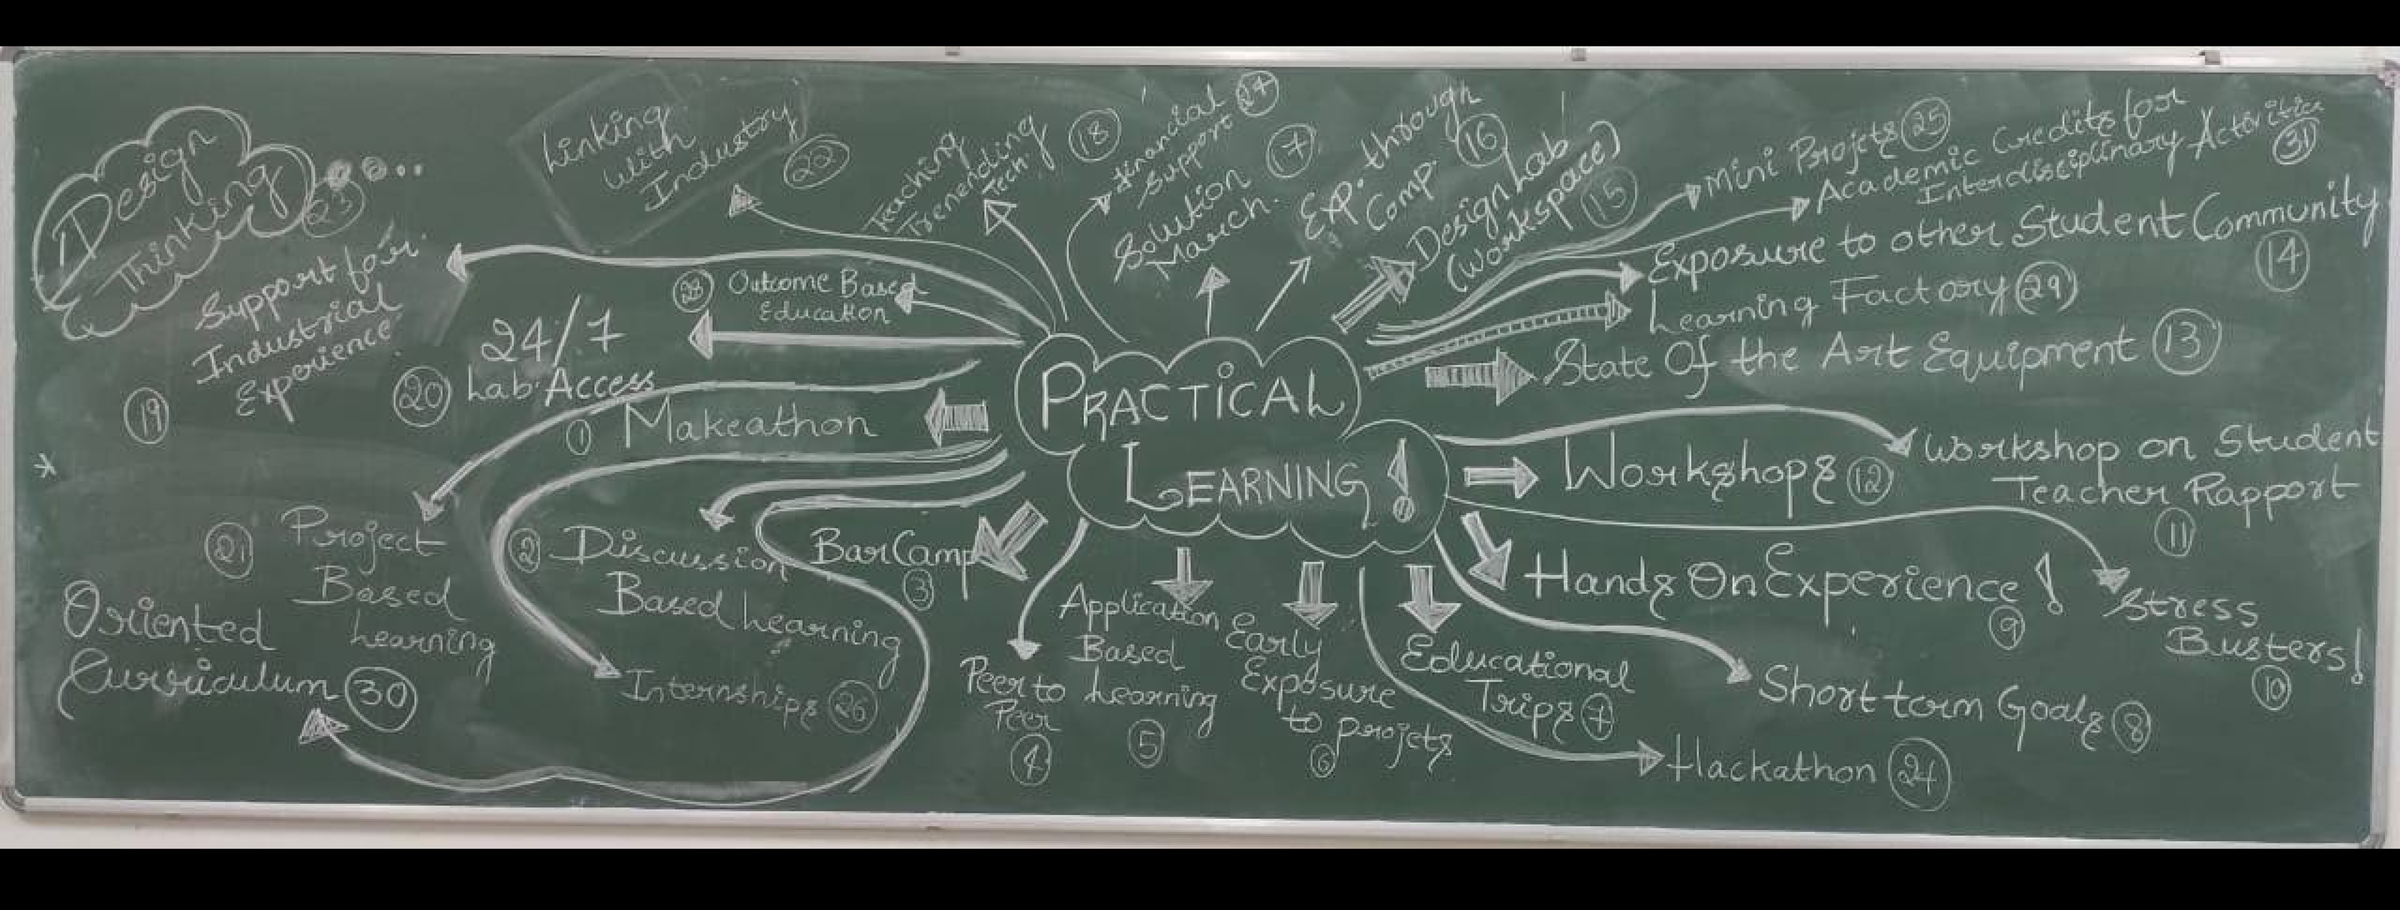 Design
Thinking
23
Linking
with
Industry
22
Teaching
Tech.
18
Financial
Support
27
Solution
March.
17
Exp. through
Comp.
16
Design Lab
(Workspace)
15
Mini Projets 25
Academic Credits for
Interdisciplinary Activities
31
Exposure to other Student Community
14
Learning Factory 29
State Of the Art Equipment 13
Support for
Industrial
Experience
19
28 Outcome Based
Education
24/7
20 Lab Access
1 Makeathon
PRACTICAL
LEARNING!
Workshops 12
Workshop on Student
Teacher Rapport
11
21 Project
Based
Learning
2 Discussion
Based Learning
BarCamp
3
Hands On Experience!
9
Stress
Busters!
10
Oriented
Curriculum 30
Internships 26
Peer to
Peer
4
Application
Based
Learning
5
Early
Exposure
to projets
6
Educational
Trips 7
Short term Goals 8
Hackathon 24